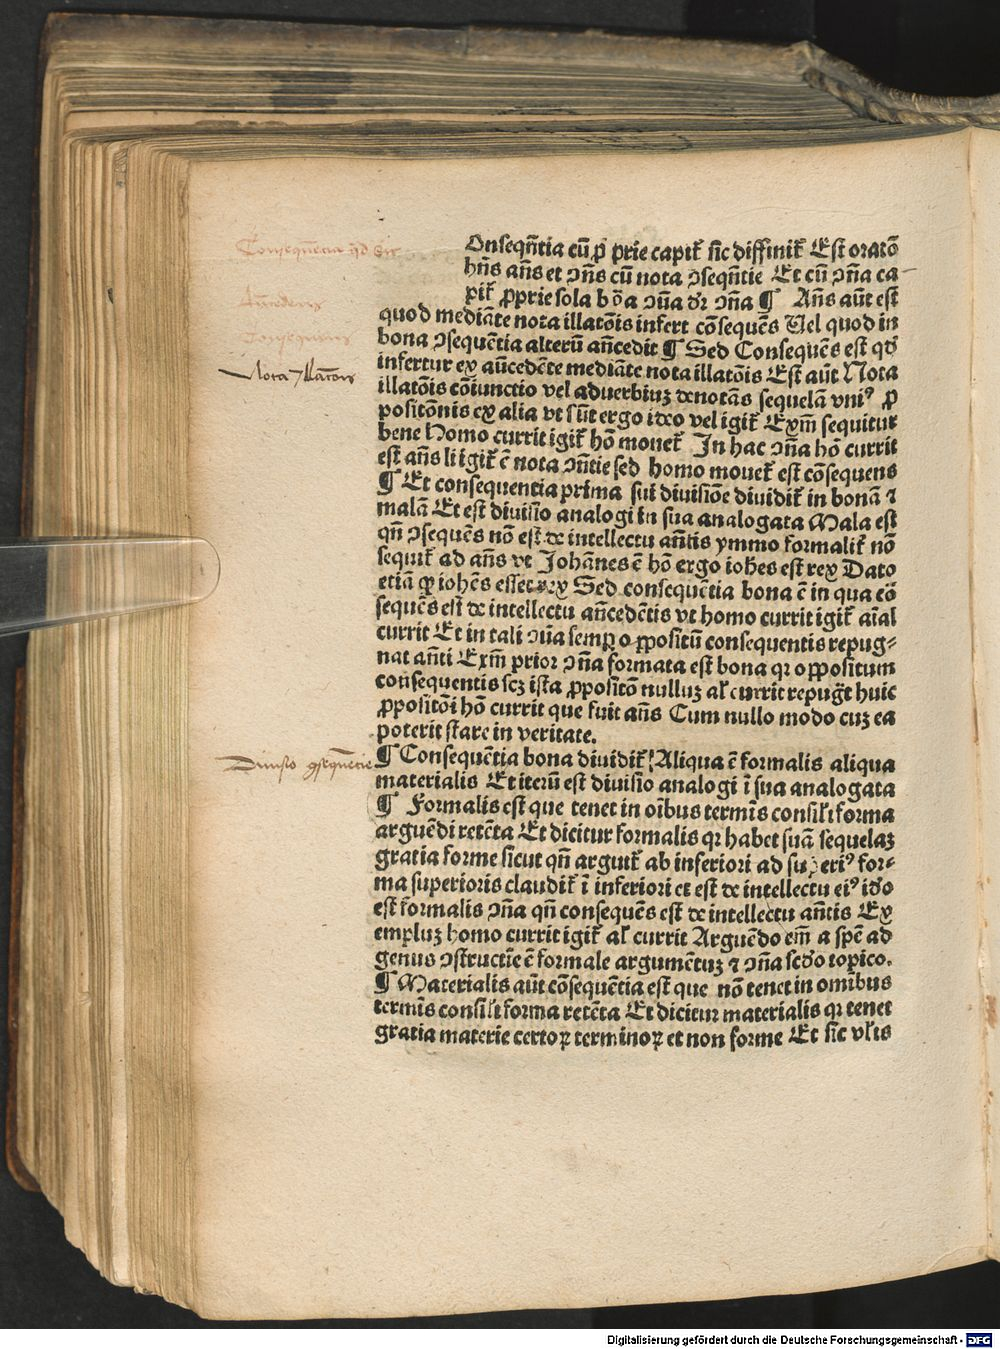 Consequẽtia qd sit
Onseqñtia cũ ꝓ prie capit᷑ sic diffinit᷑ Est oratõ
hñs añs et ↄñs cũ nota ↄseqñtie Et cũ ↄña ca-
pit᷑ ꝓprie sola bõa ↄña dr ↄña ¶ Añs aũt est
Añcedens
quod mediãte nota illatõis infert cõsequẽs Uel quod in
Consequens
bona ↄsequẽtia alterũ añcedit ¶ Sed Consequẽs est qd
infertur ex añcedẽte mediãte nota illatõis Est aũt Nota
Nota illatõis
illatõis cõiunctio vel aduerbiuꝫ denotãs sequelã vniꝰ ꝓ
positõnis ex alia vt sũt ergo ideo vel igit᷑ Exm̃ sequitur
bene Homo currit igit᷑ hõ mouet᷑ In hac ↄña hõ currit
est añs li igit᷑ ẽ nota ↄñtie sed homo mouet᷑ est cõsequens
¶ Et consequentia prima sui diuisiõe diuidit᷑ in bonã ⁊
malã Et est diuisio analogi in sua analogata Mala est
qñ ↄsequẽs nõ est de intellectu añtis ymmo formalit᷑ nõ
sequit᷑ ad añs vt Johãnes ẽ hõ ergo iohẽs est rex Dato
etiã ꝙ iohẽs esset rex Sed consequẽtia bona ẽ in qua cõ
sequẽs est de intellectu añcedẽtis vt homo currit igit᷑ aĩal
currit Et in tali ↄña semꝑ oppositũ consequentis repug⸗
nat añti Exm̃ prior ↄña formata est bona qr oppositum
consequentis scꝫ ista ꝓpositõ nulluꝫ al᷑ currit repugt huic
ꝓpositõi hõ currit que fuit añs Cum nullo modo cuꝫ ea
poterit stare in veritate.
Diuisio ↄsequẽcie
¶ Consequẽtia bona diuidit᷑ Aliqua ẽ formalis aliqua
materialis Et iterũ est diuisio analogi ĩ sua analogata
¶ Formalis est que tenet in oĩbus termĩs consil᷑i forma
arguẽdi retẽta Et dicitur formalis qr habet suã sequelaꝫ
gratia forme sicut qñ arguit᷑ ab inferiori ad superiꝰ for⸗
ma superioris claudit᷑ ĩ inferiori et est de intellectu eiꝰ ido
est formalis ↄña qñ consequẽs est de intellectu añtis Ex
empluꝫ homo currit igit᷑ al᷑ currit Arguẽdo em̃ a spẽ ad
genus ↄstructĩe ẽ formale argumẽtuꝫ ⁊ ↄña scdo topico.
¶ Materialis aũt cõsequẽtia est que nõ tenet in omĩbus
termĩs consil᷑i forma retẽta Et dicitur materialis qr tenet
gratia materie certoꝝ terminoꝝ et non forme Et sic vl᷑is
Digitalisierung gefördert durch die Deutsche Forschungsgemeinschaft - DFG